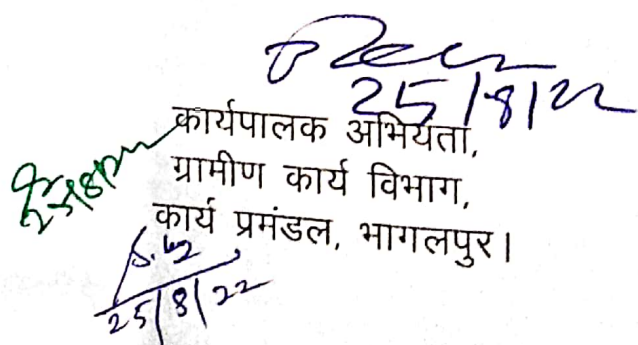 25/8/22
कार्यपालक अभियंता,
25/8/22
ग्रामीण कार्य विभाग,
कार्य प्रमंडल, भागलपुर।
25/8/22